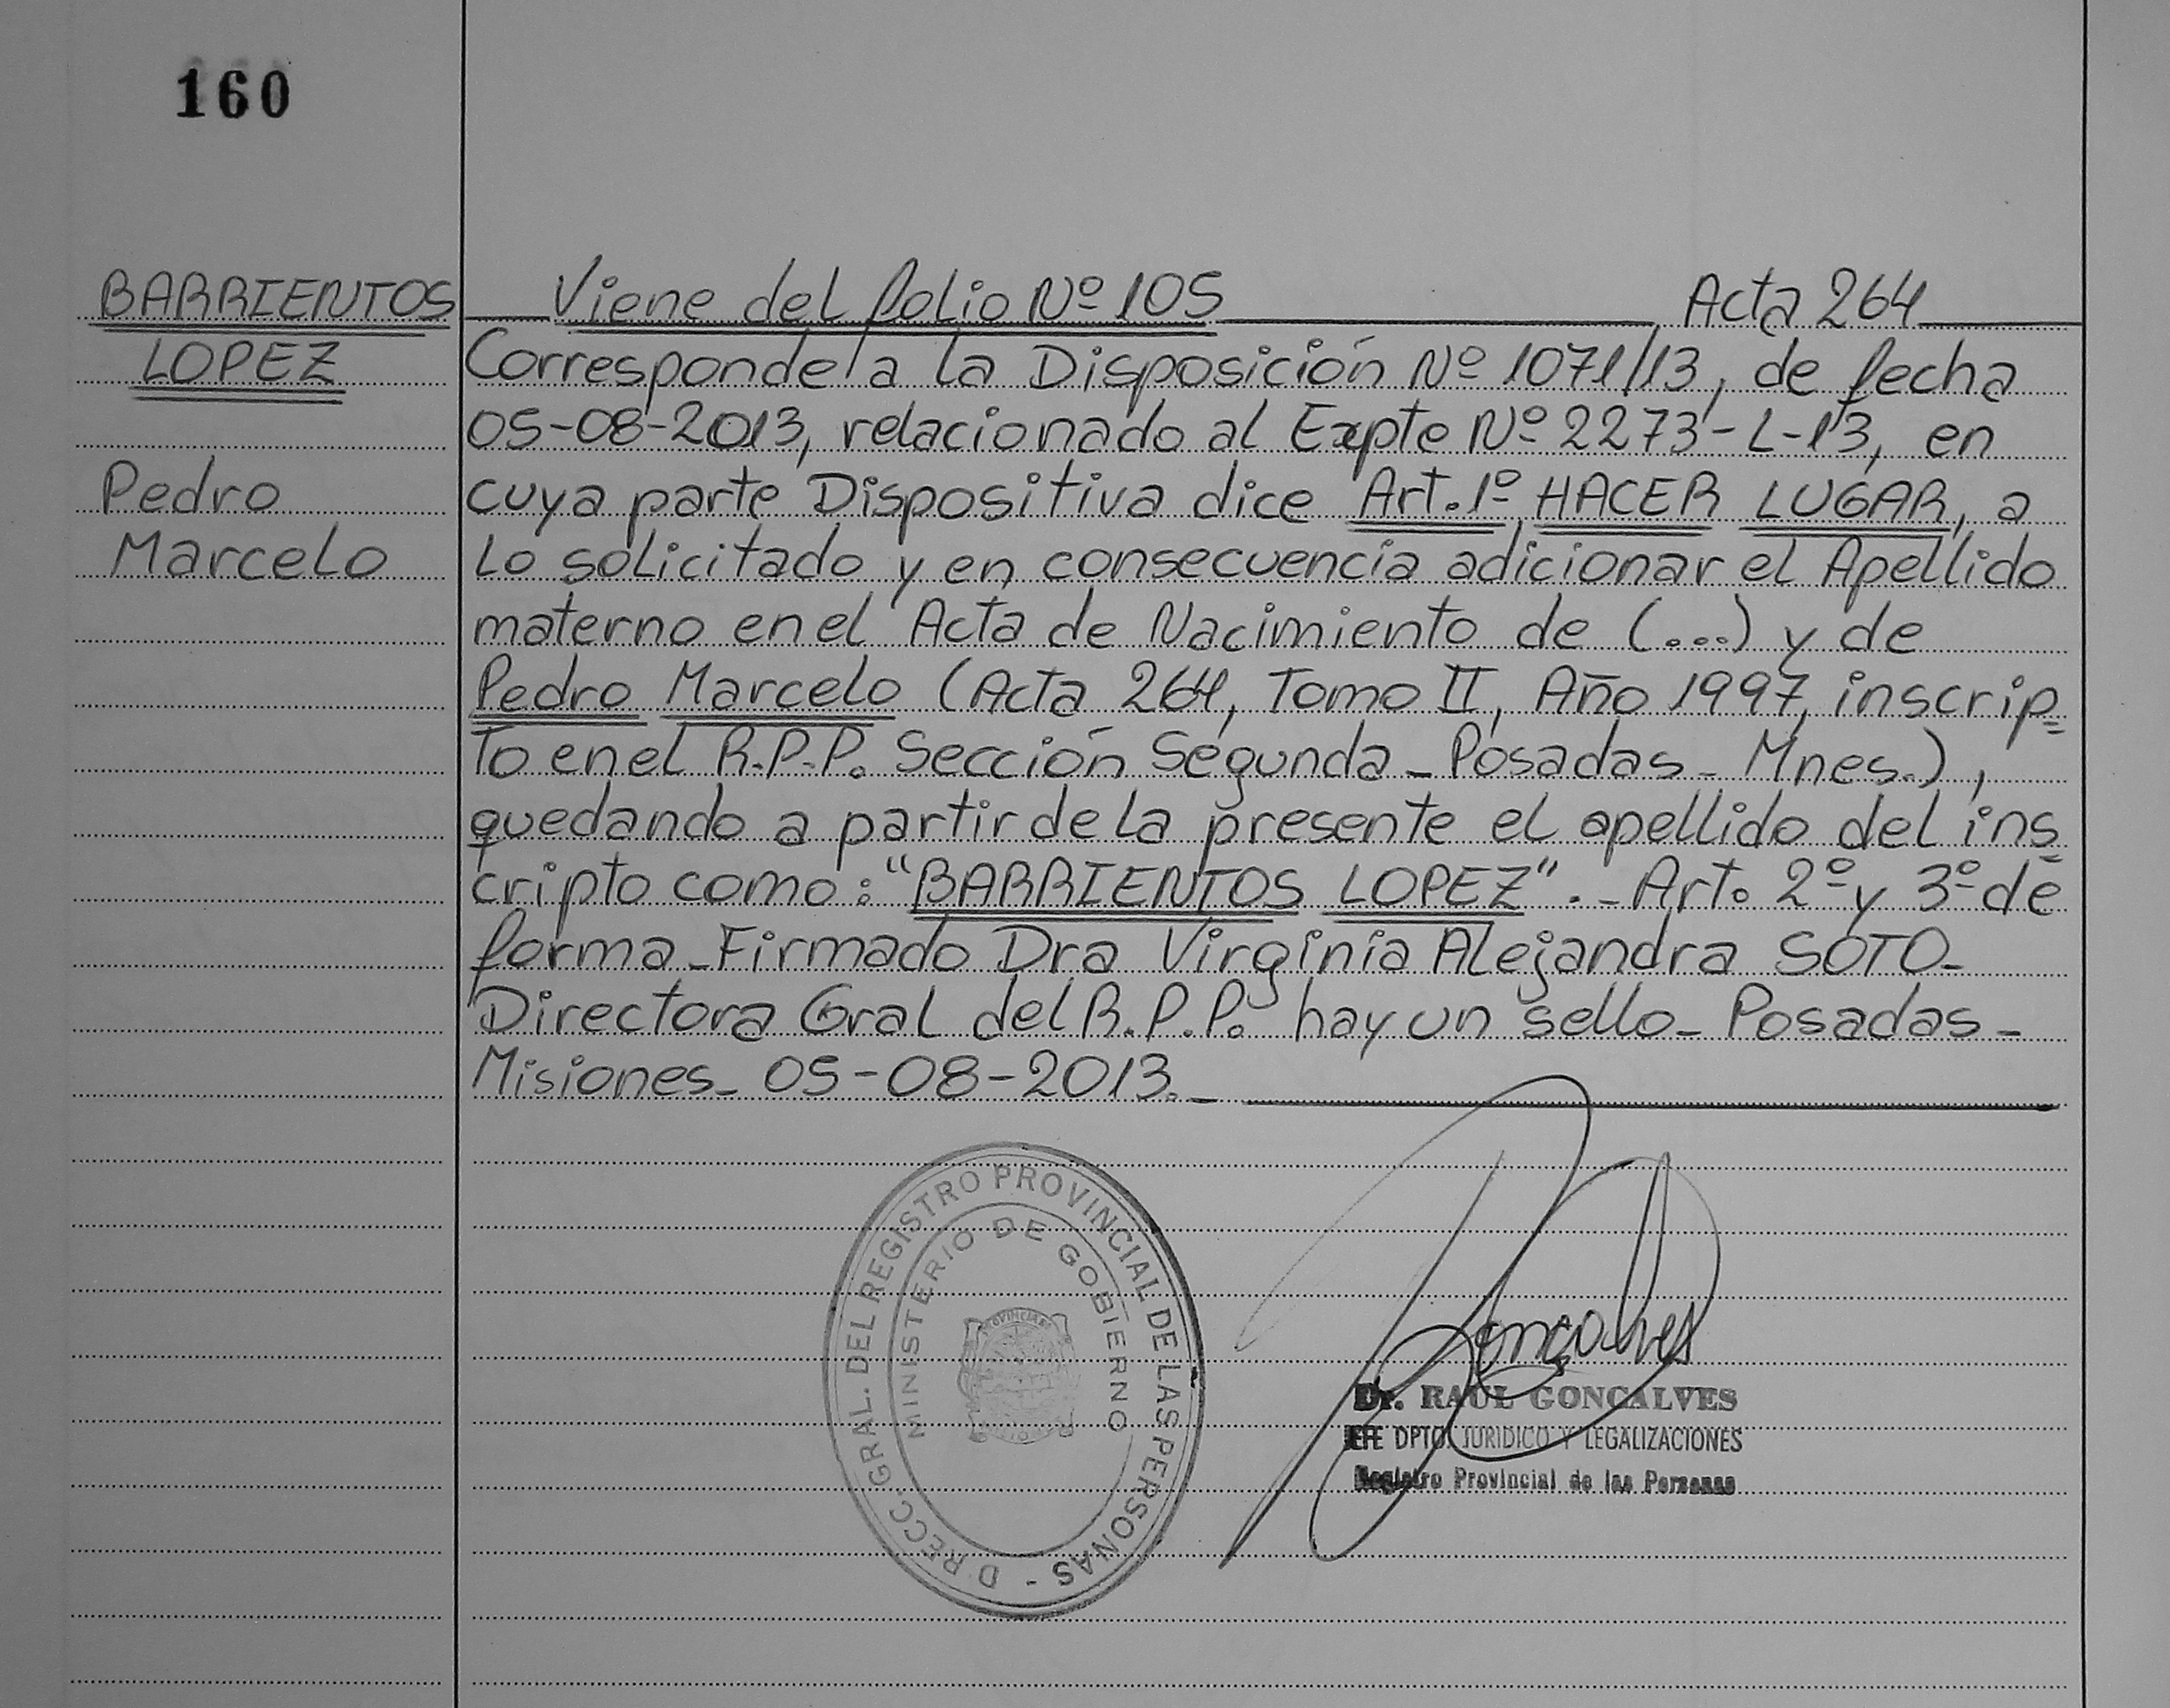 160
BARRIENTOS
LOPEZ
Pedro
Marcelo
Viene del folio Nº 105 Acta 264
Corresponde a la Disposición Nº 1071/13, de fecha
05-08-2013, relacionado al Expte Nº 2273-L-13, en
cuya parte Dispositiva dice Art. 1º HACER LUGAR, a
lo solicitado y en consecuencia adicionar el Apellido
materno en el Acta de Nacimiento de (...) y de
Pedro Marcelo (Acta 264, Tomo II, Año 1997, inscrip=
to en el R.P.P. Sección Segunda_ Posadas_ Mnes.),
quedando a partir de la presente el apellido del ins=
cripto como: "BARRIENTOS LOPEZ"._ Art. 2º y 3º de
forma_ Firmado Dra Virginia Alejandra SOTO_
Directora Gral del R.P.P. hay un sello_ Posadas_
Misiones_ 05-08-2013._
DIRECC. GRAL. DEL REGISTRO PROVINCIAL DE LAS PERSONAS -
MINISTERIO DE GOBIERNO
Gonçalves
Dr. RAUL GONCALVES
JEFE DPTO. JURIDICO Y LEGALIZACIONES
Registro Provincial de las Personas